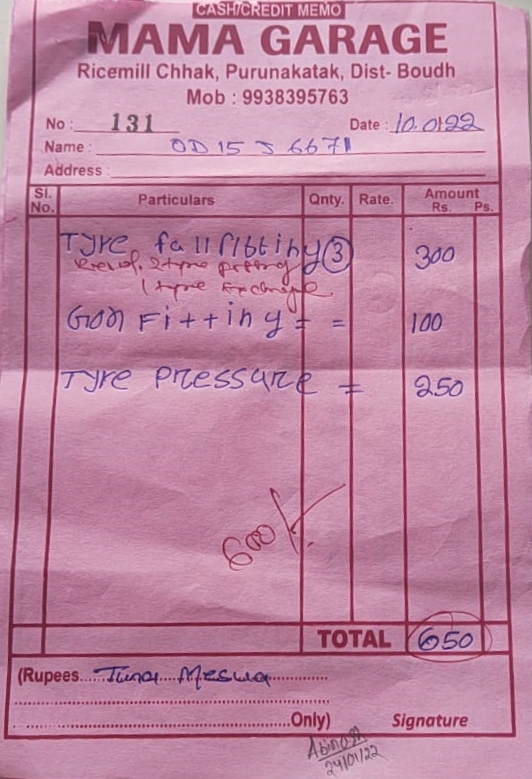 CASH/CREDIT MEMO
MAMA GARAGE
Ricemill Chhak, Purunakatak, Dist- Boudh
Mob : 9938395763
No : 131 Date : 10.0122
Name : OD 15 J 6671
Address :
Sl. No. Particulars Qnty. Rate. Amount Rs. Ps.
Tyre fall fitting ③ 300
2 tyre fitting
1 tyre Exchange
Fitting = = 100
Tyre Pressure = 250
600/-
TOTAL 650
(Rupees
Only) Signature
Abinash
24/01/22